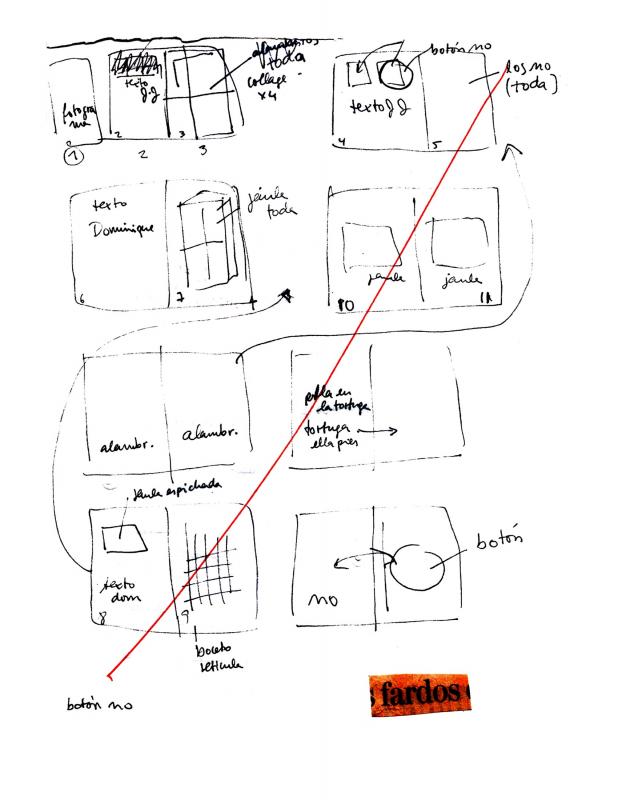 texto
JJ
toda
collage
x4
fotogra
ma
1
2
3
2
3
botón no
los no
(toda)
texto JJ
4
5
texto
Dominique
jaula
toda
6
7
jaula
jaula
10
11
alambr.
alambr.
en
la tortuga
tortuga
ella pies
jaula espichada
texto
dom
8
9
boceto
retícula
no
botón
botón no
fardos